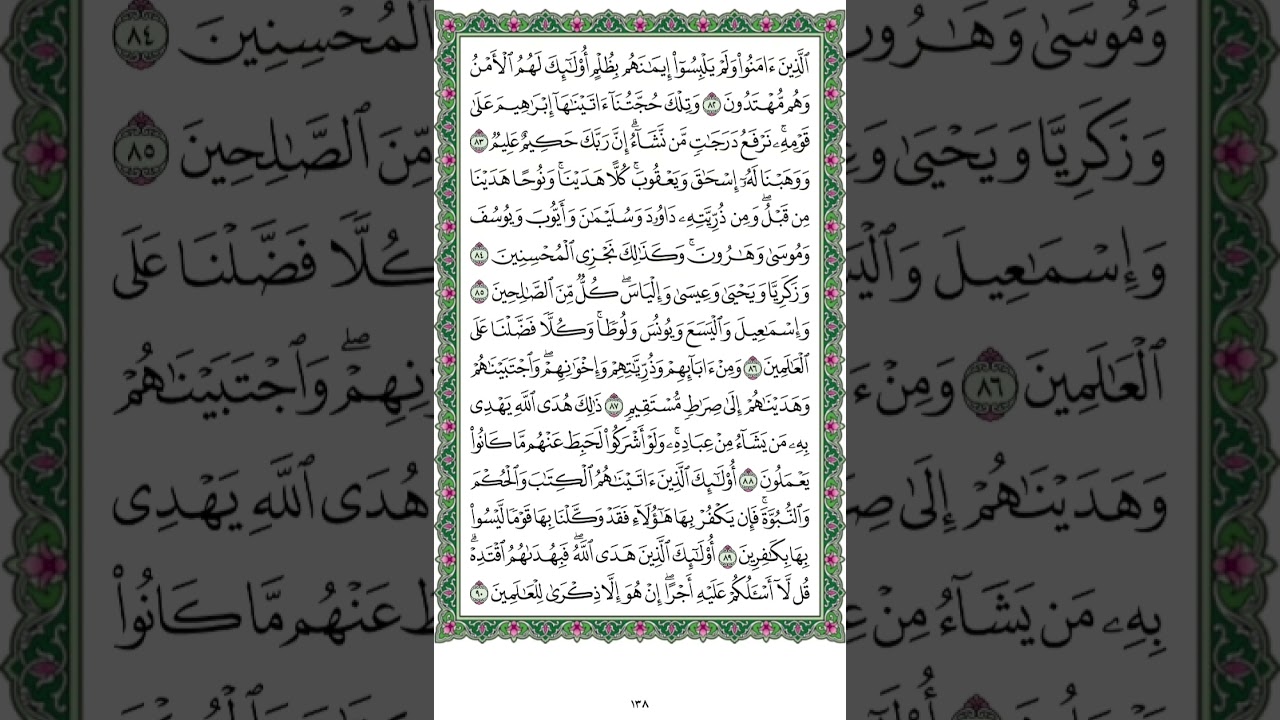 ٱلَّذِينَ ءَامَنُوا۟ وَلَمْ يَلْبِسُوٓا۟ إِيمَـٰنَهُم بِظُلْمٍ أُو۟لَـٰٓئِكَ لَهُمُ ٱلْأَمْنُ
وَهُم مُّهْتَدُونَ ٨٢ وَتِلْكَ حُجَّتُنَآ ءَاتَيْنَـٰهَآ إِبْرَٰهِيمَ عَلَىٰ
قَوْمِهِۦ ۚ نَرْفَعُ دَرَجَـٰتٍ مَّن نَّشَآءُ ۗ إِنَّ رَبَّكَ حَكِيمٌ عَلِيمٌ ٨٣
وَوَهَبْنَا لَهُۥٓ إِسْحَـٰقَ وَيَعْقُوبَ ۚ كُلًّا هَدَيْنَا ۚ وَنُوحًا هَدَيْنَا
مِن قَبْلُ ۖ وَمِن ذُرِّيَّتِهِۦ دَاوُۥدَ وَسُلَيْمَـٰنَ وَأَيُّوبَ وَيُوسُفَ
وَمُوسَىٰ وَهَـٰرُونَ ۚ وَكَذَٰلِكَ نَجْزِى ٱلْمُحْسِنِينَ ٨٤
وَزَكَرِيَّا وَيَحْيَىٰ وَعِيسَىٰ وَإِلْيَاسَ ۖ كُلٌّ مِّنَ ٱلصَّـٰلِحِينَ ٨٥
وَإِسْمَـٰعِيلَ وَٱلْيَسَعَ وَيُونُسَ وَلُوطًا ۚ وَكُلًّا فَضَّلْنَا عَلَى
ٱلْعَـٰلَمِينَ ٨٦ وَمِنْ ءَابَآئِهِمْ وَذُرِّيَّـٰتِهِمْ وَإِخْوَٰنِهِمْ ۖ وَٱجْتَبَيْنَـٰهُمْ
وَهَدَيْنَـٰهُمْ إِلَىٰ صِرَٰطٍ مُّسْتَقِيمٍ ٨٧ ذَٰلِكَ هُدَى ٱللَّهِ يَهْدِى
بِهِۦ مَن يَشَآءُ مِنْ عِبَادِهِۦ ۚ وَلَوْ أَشْرَكُوا۟ لَحَبِطَ عَنْهُم مَّا كَانُوا۟
يَعْمَلُونَ ٨٨ أُو۟لَـٰٓئِكَ ٱلَّذِينَ ءَاتَيْنَـٰهُمُ ٱلْكِتَـٰبَ وَٱلْحُكْمَ
وَٱلنُّبُوَّةَ ۚ فَإِن يَكْفُرْ بِهَا هَـٰٓؤُلَآءِ فَقَدْ وَكَّلْنَا بِهَا قَوْمًا لَّيْسُوا۟
بِهَا بِكَـٰفِرِينَ ٨٩ أُو۟لَـٰٓئِكَ ٱلَّذِينَ هَدَى ٱللَّهُ ۖ فَبِهُدَىٰهُمُ ٱقْتَدِهْ ۗ
قُل لَّآ أَسْـَٔلُكُمْ عَلَيْهِ أَجْرًا ۖ إِنْ هُوَ إِلَّا ذِكْرَىٰ لِلْعَـٰلَمِينَ ٩٠
١٣٨